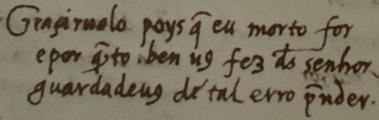 Graçiruolo poys q̃ eu morto for
epor q̃to ben uꝯ fez d̃s senhor
guardadeuꝯ de tal erro p̃nder.